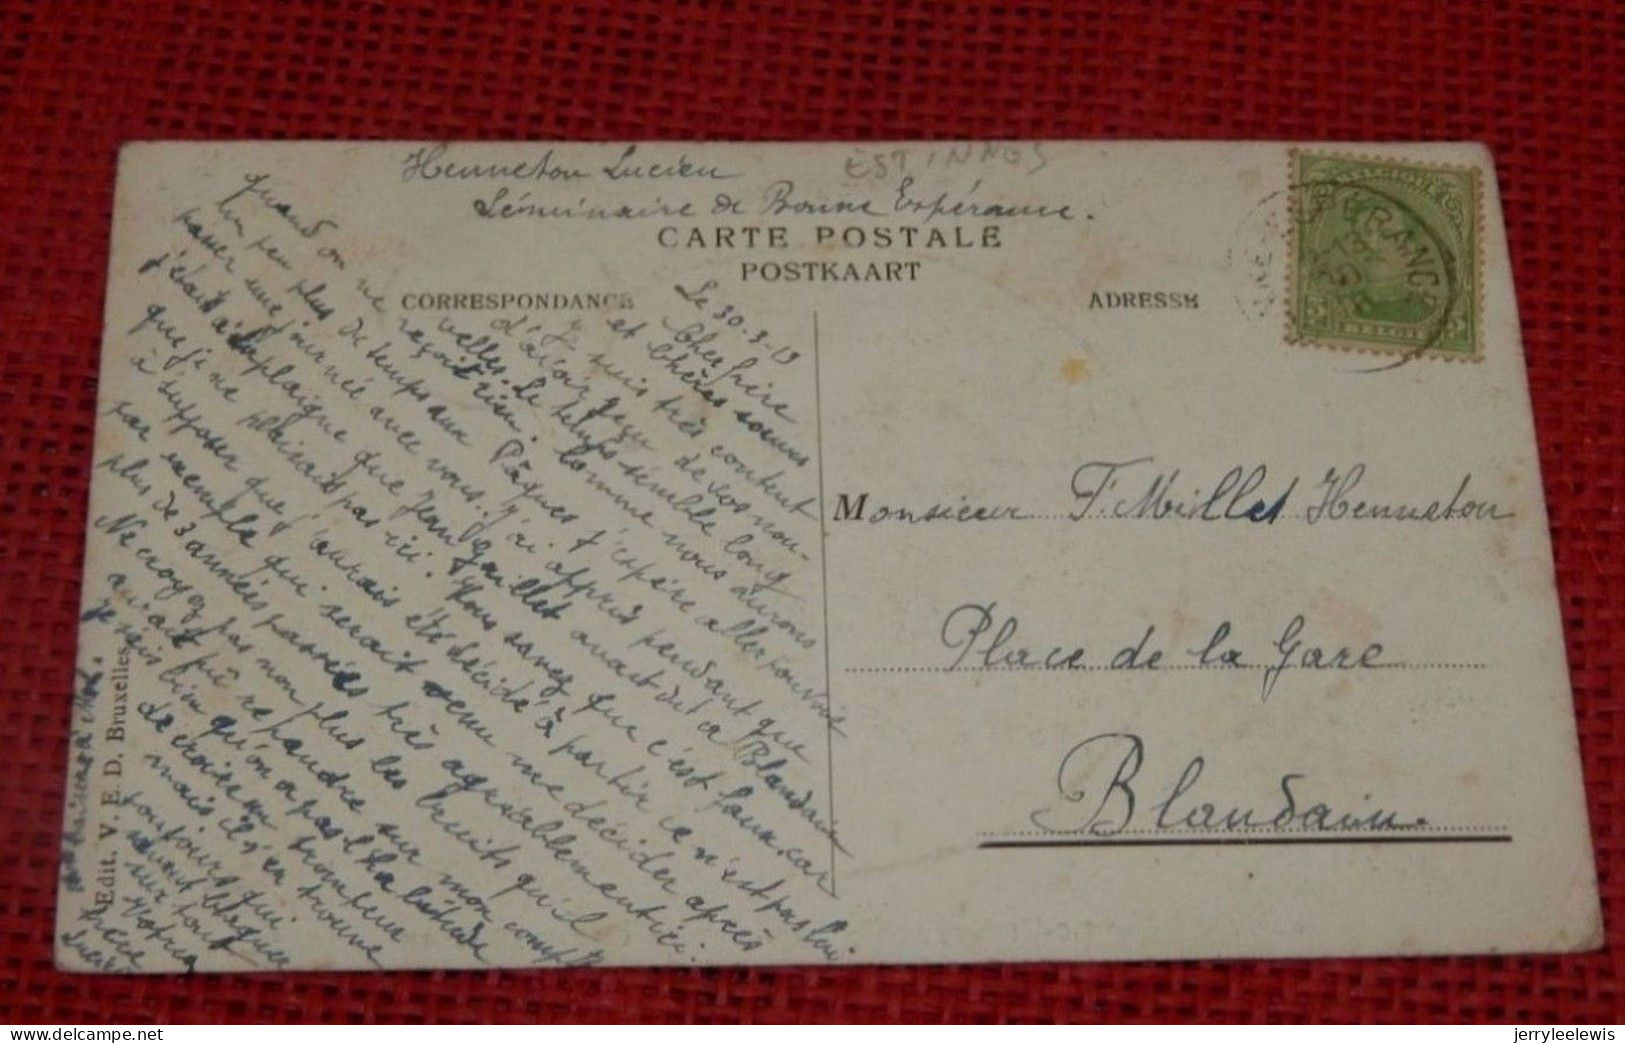 Henneton Lucien
ESTINNES
Séminaire de Bonne Espérance.
CARTE POSTALE
POSTKAART
CORRESPONDANCE
ADRESSE
Le 30-3-19
Cher frère
et Chères soeurs
Je suis très content
d'avoir reçu de vos nou-
velles. Le temps semble long
quand on ne reçoit rien. Comme nous aurons
un peu plus de temps aux Pâques j'espère aller pouvoir
passer une journée avec vous. J'ai appris pendant que
j'étais à Templaigne que Jean Gaillet avait dit à Blandain
que je ne plaisais pas ici. Vous savez que c'est faux, car
à supposer que j'aurais été décidé à partir ce n'est pas lui
par exemple qui serait venu me décider après
plus de 3 années passées très agréablement ici.
Ne croyez pas non plus les bruits qu'il
aurait pû répandre sur mon compte
Je sais bien qu'on a pas l'habitude
de croire un trompeur
mais il s'en trouve
toujours qui
savent blaguer
surtout
Votre
frère
Lucien
Monsieur F. Millet Henneton
Place de la Gare
Blandain.
Edit. V. E. D. Bruxelles
jerryleelewis